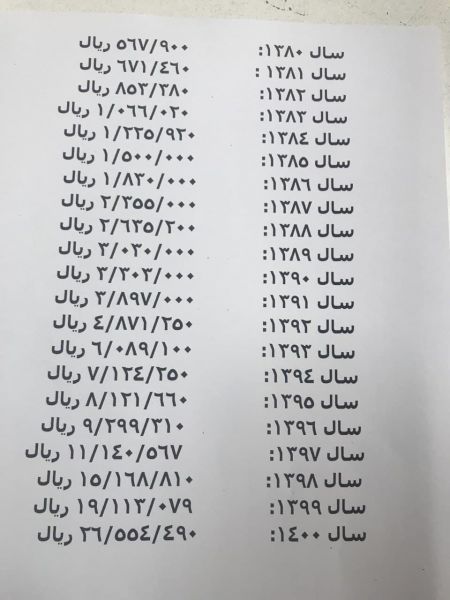 سال ۱۳۸۰: ۵٦۷/۹۰۰ ریال
سال ۱۳۸۱ : ٦۷۱/٤٦۰ ریال
سال ۱۳۸۲: ۸۵۳/۳۸۰ ریال
سال ۱۳۸۳: ۱/۰٦٦/۰۲۰ ریال
سال ۱۳۸٤: ۱/۲۲۵/۹۲۰ ریال
سال ۱۳۸۵: ۱/۵۰۰/۰۰۰ ریال
سال ۱۳۸٦: ۱/۸۳۰/۰۰۰ ریال
سال ۱۳۸۷: ۲/۳۵۵/۰۰۰ ریال
سال ۱۳۸۸: ۲/٦۳۵/۲۰۰ ریال
سال ۱۳۸۹: ۳/۰۳۰/۰۰۰ ریال
سال ۱۳۹۰: ۳/۳۰۳/۰۰۰ ریال
سال ۱۳۹۱: ۳/۸۹۷/۰۰۰ ریال
سال ۱۳۹۲: ٤/۸۷۱/۲۵۰ ریال
سال ۱۳۹۳: ٦/۰۸۹/۱۰۰ ریال
سال ۱۳۹٤: ۷/۱۲٤/۲۵۰ ریال
سال ۱۳۹۵: ۸/۱۲۱/٦٦۰ ریال
سال ۱۳۹٦: ۹/۲۹۹/۳۱۰ ریال
سال ۱۳۹۷: ۱۱/۱٤۰/۵٦۷ ریال
سال ۱۳۹۸: ۱۵/۱٦۸/۸۱۰ ریال
سال ۱۳۹۹: ۱۹/۱۱۳/۰۷۹ ریال
سال ۱٤۰۰: ۲٦/۵۵٤/٤۹۰ ریال